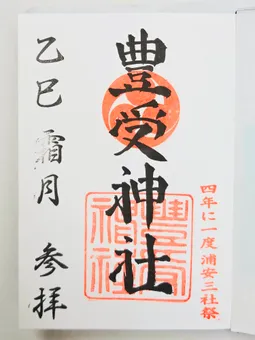 四年に一度 浦安三社祭
豊受神社
乙巳 霜月 参拝